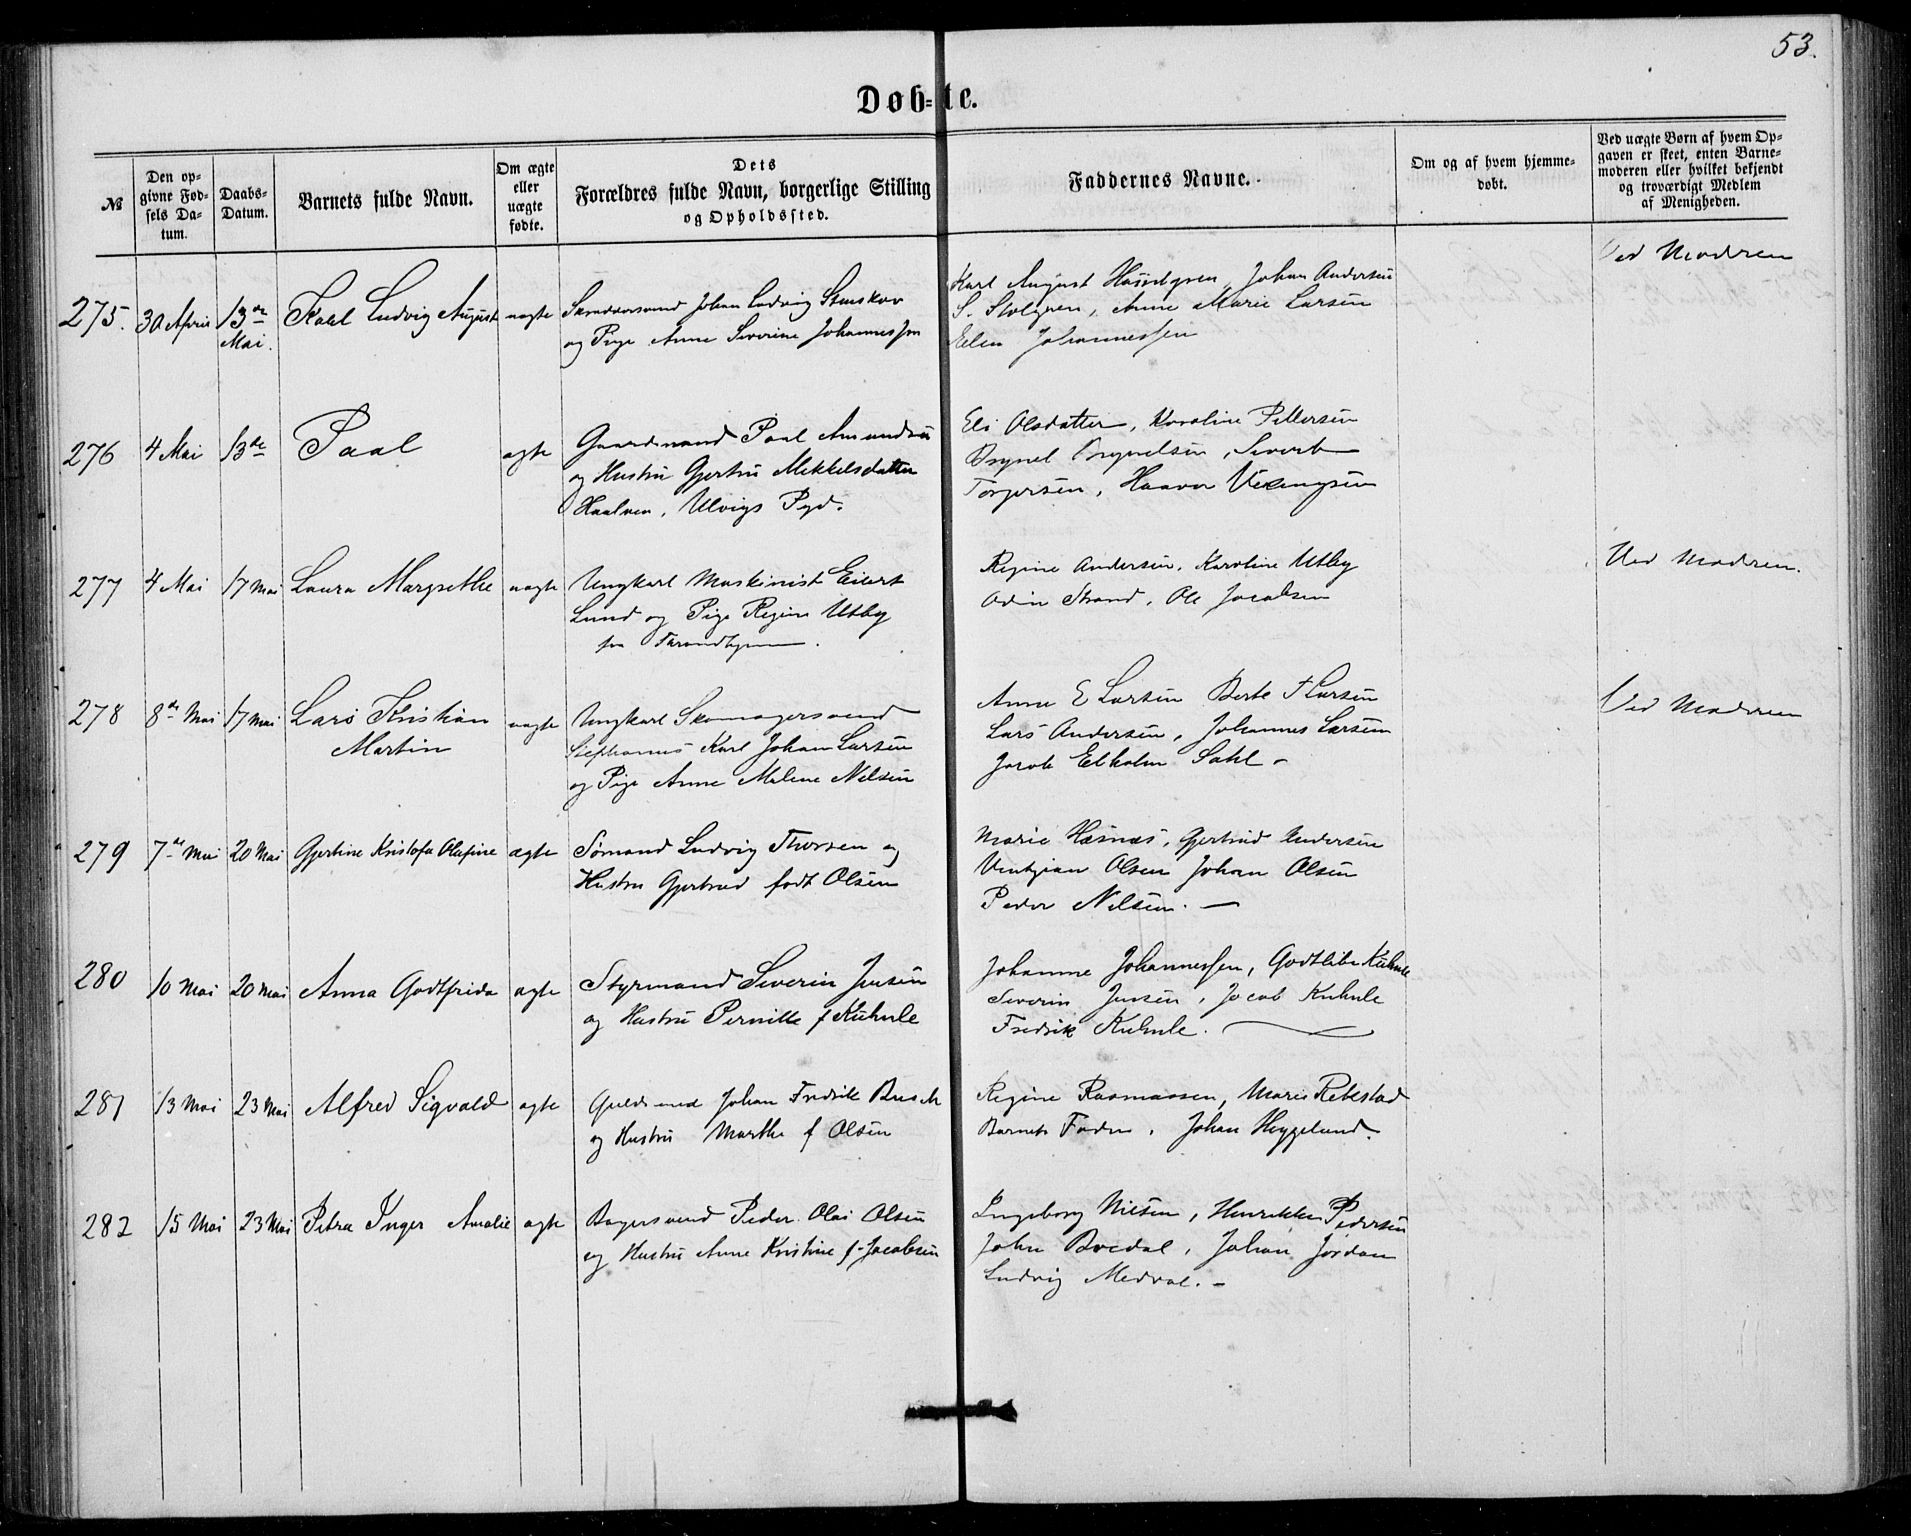 53.
Døb=te.
№
Den op=
givne Fød=
sels Da=
tum.
Daabs=
Datum.
Barnets fulde Navn.
Om ægte
eller
uægte
fødte.
Dets
Forældres fulde Navn, borgerlige Stilling
og Opholdssted.
Faddernes Navne.
Om og af hvem hjemme=
døbt.
Ved uægte Børn af hvem Op=
gaven er skeet, enten Barne=
moderen eller hvilket bekjendt
og troværdigt Medlem
af Menigheden.
275. 30 April 13de Mai. Karl Ludvig August uægte
Johan Ludvig
og Pige Anne Severine Johannessen
Karl August Johan Andersen
S. Stolgren, Anne Marie Larsen
Elen Johannessen
Ved Modren
276 4 Mai 13de Paal ægte
Gaardmand Paal Amundsen
og Hustru Gjertru Mikkelsdatter
Ulvigs Pgd.
Eli Olsdatter, Karoline Pettersen
Brynel Brynelsen, Sivert
Torgersen, Haavor
277 4 Mai 17 Mai Laura Margrethe uægte
Ungkarl Maskinist Eilert
Lund og Pige Regine Utby
fra
Regine Andersen, Karoline Utby
Odin Strand, Ole Jacobsen
Ved Modren.
278 8de Mai 17 Mai Lars Kristian
Martin uægte
Ungkarl Skomagersvend
Stephanus Karl Johan Larsen
og Pige Anne Malene Nilsen
Anne E Larsen Berte T Larsen
Lars Andersen, Johannes Larsen
Jacob Ekholm Dahl -
Ved Modren
279 7de Mai 20 Mai Gjertine Kristofa Olufine ægte
Sømand Ludvig Thorsen og
Hustru Gjertrud født Olsen
Marie Hasnæs, Gjertrud Andersen
Olsen Johan Olsen
Peder Nilsen. —
280 10 Mai 20 Mai Anna Godtfrida ægte
Styrmand Severin Jensen
og Hustru Pernille f Kuhnle
Johanne Johannessen, Godtlibe Kuhnle
Severin Jensen, Jacob Kuhnle
Fredrik Kuhnle.
281 13 Mai 23 Mai Alfred Sigvald ægte
Guldsmed Johan Fredrik Busch
og Hustru Marthe f Olsen
Regine Rasmussen, Marie Rekstad
Barnets Fader, Johan Hyggelund.
282 15 Mai 23 Mai Petra Inger Amalie ægte
Bagersvend Peder Olai Olsen
og Hustru Anne Kristine f. Jacobsen
Ingeborg Nilsen, Henrikke Pedersen
John Bredal, Johan Jordan
Ludvig Medvol. -